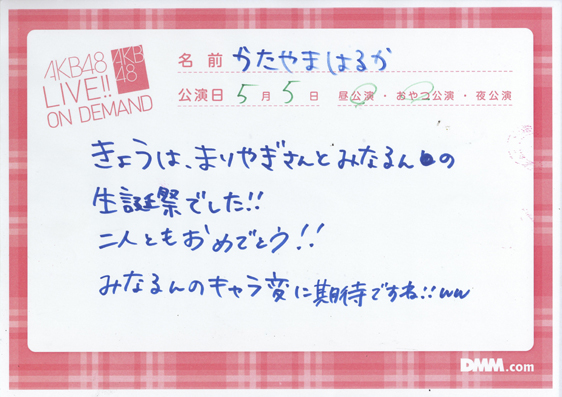 AKB48
LIVE!!
ON DEMAND
AKB
48
名前 かたやまはるか
公演日 5月5日 昼公演・おやつ公演・夜公演
きょうは、まりやぎさんとみなるんの
生誕祭でした!!
二人ともおめでとう!!
みなるんのキャラ変に期待ですね!!ww
DMM.com